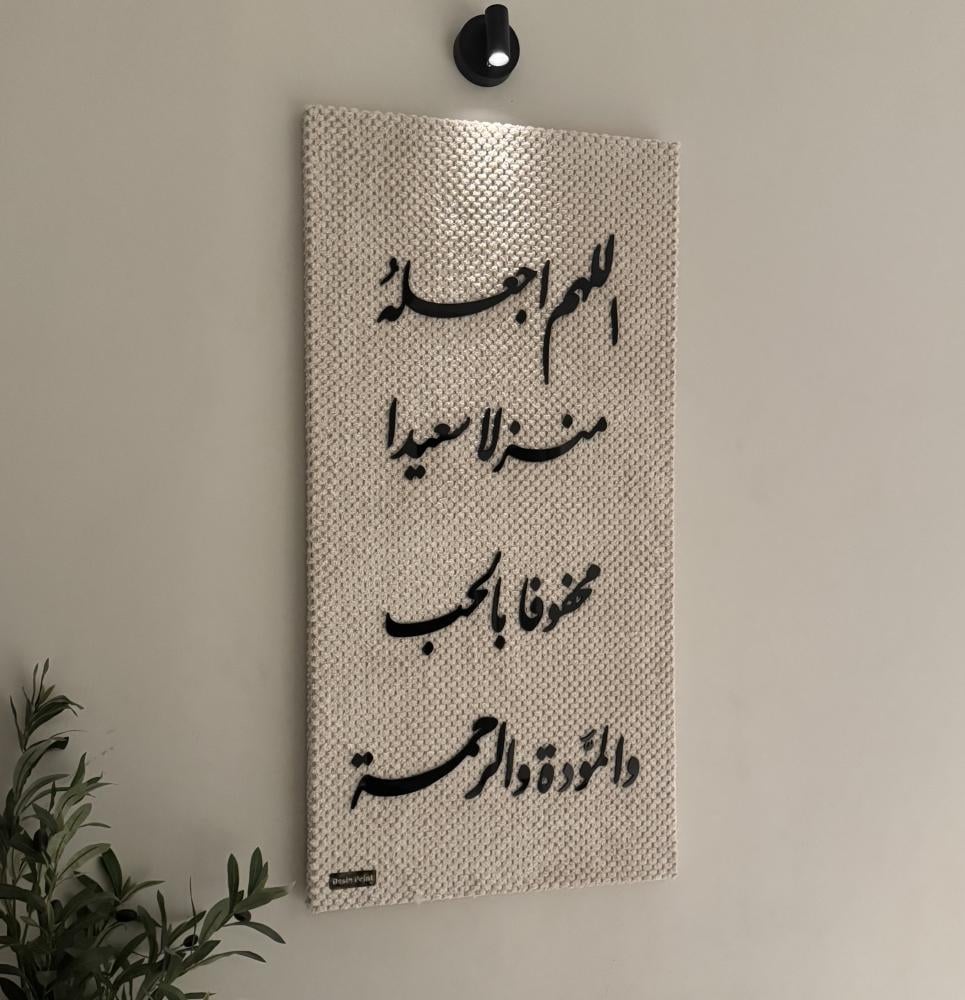 اللهم اجعلهُ
منزلا سعيدا
محفوفا بالحب
والموَّدة والرحمة
Desin Point